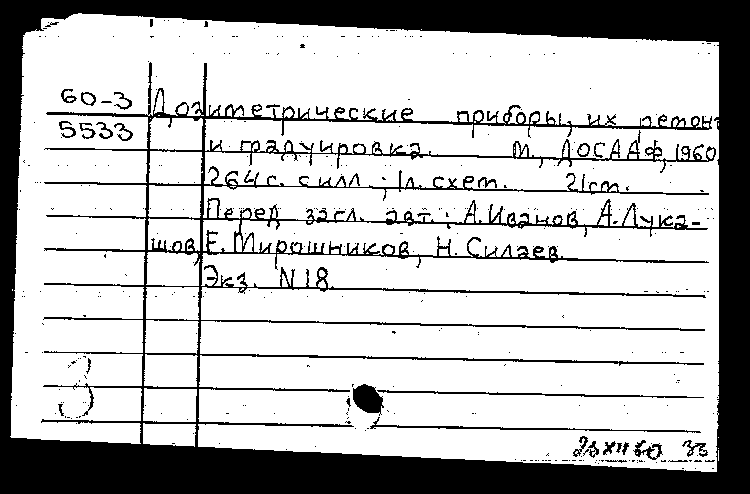 60-3 Дозиметрические приборы, их ремонт
5533 и градуировка. М., ДОСААФ, 1960.
264 с. с илл.; 1 л. схем. 21 cm.
Перед загл. авт.: А. Иванов, А. Лука-
шов, Е. Мирошников, Н. Силаев.
Экз. N 18.
3
23 XII 60 33